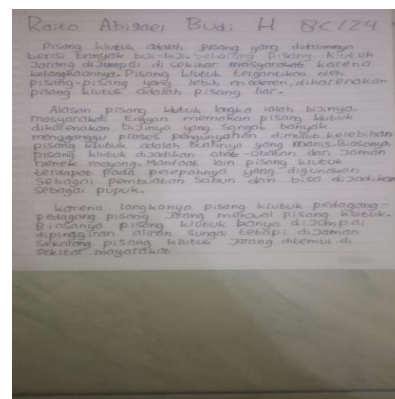 Raito Abigael Budi H 8C/24
Pisang klutuk adalah pisang yang dalamnya
berisi banyak biji-biji. Sekarang pisang klutuk
Jarang diJumpai di sekitar masyarakat karena
kelangkaannya. Pisang klutuk tergantikan oleh
pisang-pisang yang lebih moderen, dikarenakan
pisang klutuk adalah pisang liar.
Alasan pisang klutuk langka ialah bijinya.
masyarakat Enggan memakan pisang klutuk
dikarenakan bijinya yang sangat banyak
mengganggu proses pengunyahan dimulut. kelebihan
pisang klutuk adalah buahnya yang manis. Biasanya
pisang klutuk diJadikan obat-obatan dari Jaman
nenek moyang. Manfaat lain pisang klutuk
terdapat pada pelepahnya yang digunakan
Sebagai pembuatan Sabun dan bisa diJadikan
sebagai pupuk.
karena langkanya pisang klutuk pedagang-
pedagang pisang Jarang menjual pisang klutuk.
Biasanya pisang klutuk banya diJumpai
dipinggiran aliran sungai tetapi diJaman
Sekarang pisang klutuk Jarang ditemui di
sekitar mayarakat